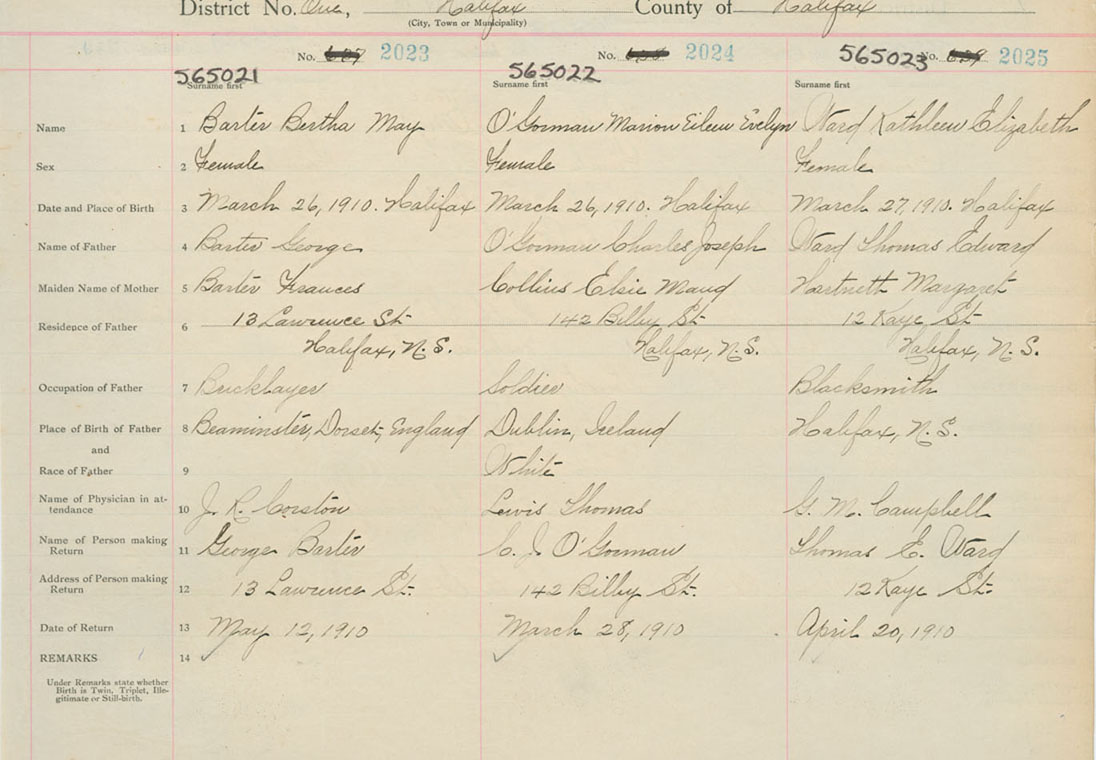 District No. One, Halifax County of Halifax
(City, Town or Municipality)
No. 2023 No. 2024 No. 2025
565021 565022 565023
Surname first Surname first Surname first
Name 1 Barter Bertha May O'Gorman Marion Eileen Evelyn Ward Kathleen Elizabeth
Sex 2 Female Female Female
Date and Place of Birth 3 March 26, 1910. Halifax March 26, 1910. Halifax March 27, 1910. Halifax
Name of Father 4 Barter George O'Gorman Charles Joseph Ward Thomas Edward
Maiden Name of Mother 5 Barter Frances Collins Elsie Maud Hartneth Margaret
Residence of Father 6 13 Lawrence St. 142 Bilby St. 12 Kaye St.
Halifax, N.S. Halifax, N.S. Halifax, N.S.
Occupation of Father 7 Bricklayer Soldier Blacksmith
Place of Birth of Father 8 Beaminster, Dorset, England Dublin, Ireland Halifax, N.S.
and
Race of Father 9 White
Name of Physician in at-
tendance 10 J. R. Corston Lewis Thomas G. M. Campbell
Name of Person making
Return 11 George Barter C. J. O'Gorman Thomas E. Ward
Address of Person making
Return 12 13 Lawrence St. 142 Bilby St. 12 Kaye St.
Date of Return 13 May 12, 1910 March 28, 1910 April 20, 1910
REMARKS 14
Under Remarks state whether
Birth is Twin, Triplet, Ille-
gitimate or Still-birth.